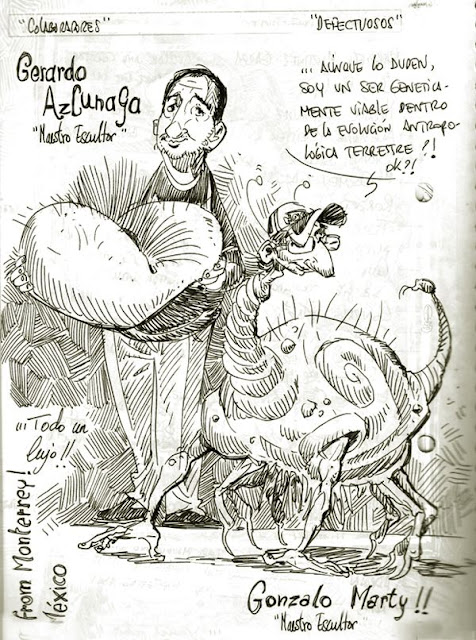 "COLABORADORES"
"DEFECTUOSOS"
Gerardo
Azcunaga
"Maestro Escultor"
... AÚNQUE LO DUDEN,
SOY UN SER GENETICA-
MENTE VIABLE DENTRO
DE LA EVOLUCIÓN ANTROPO-
LÓGICA TERRESTRE ?!
OK?!
¡¡¡Todo un
lujo!!
from Monterrey!
México
Gonzalo Marty!!
"Maestro Escultor"